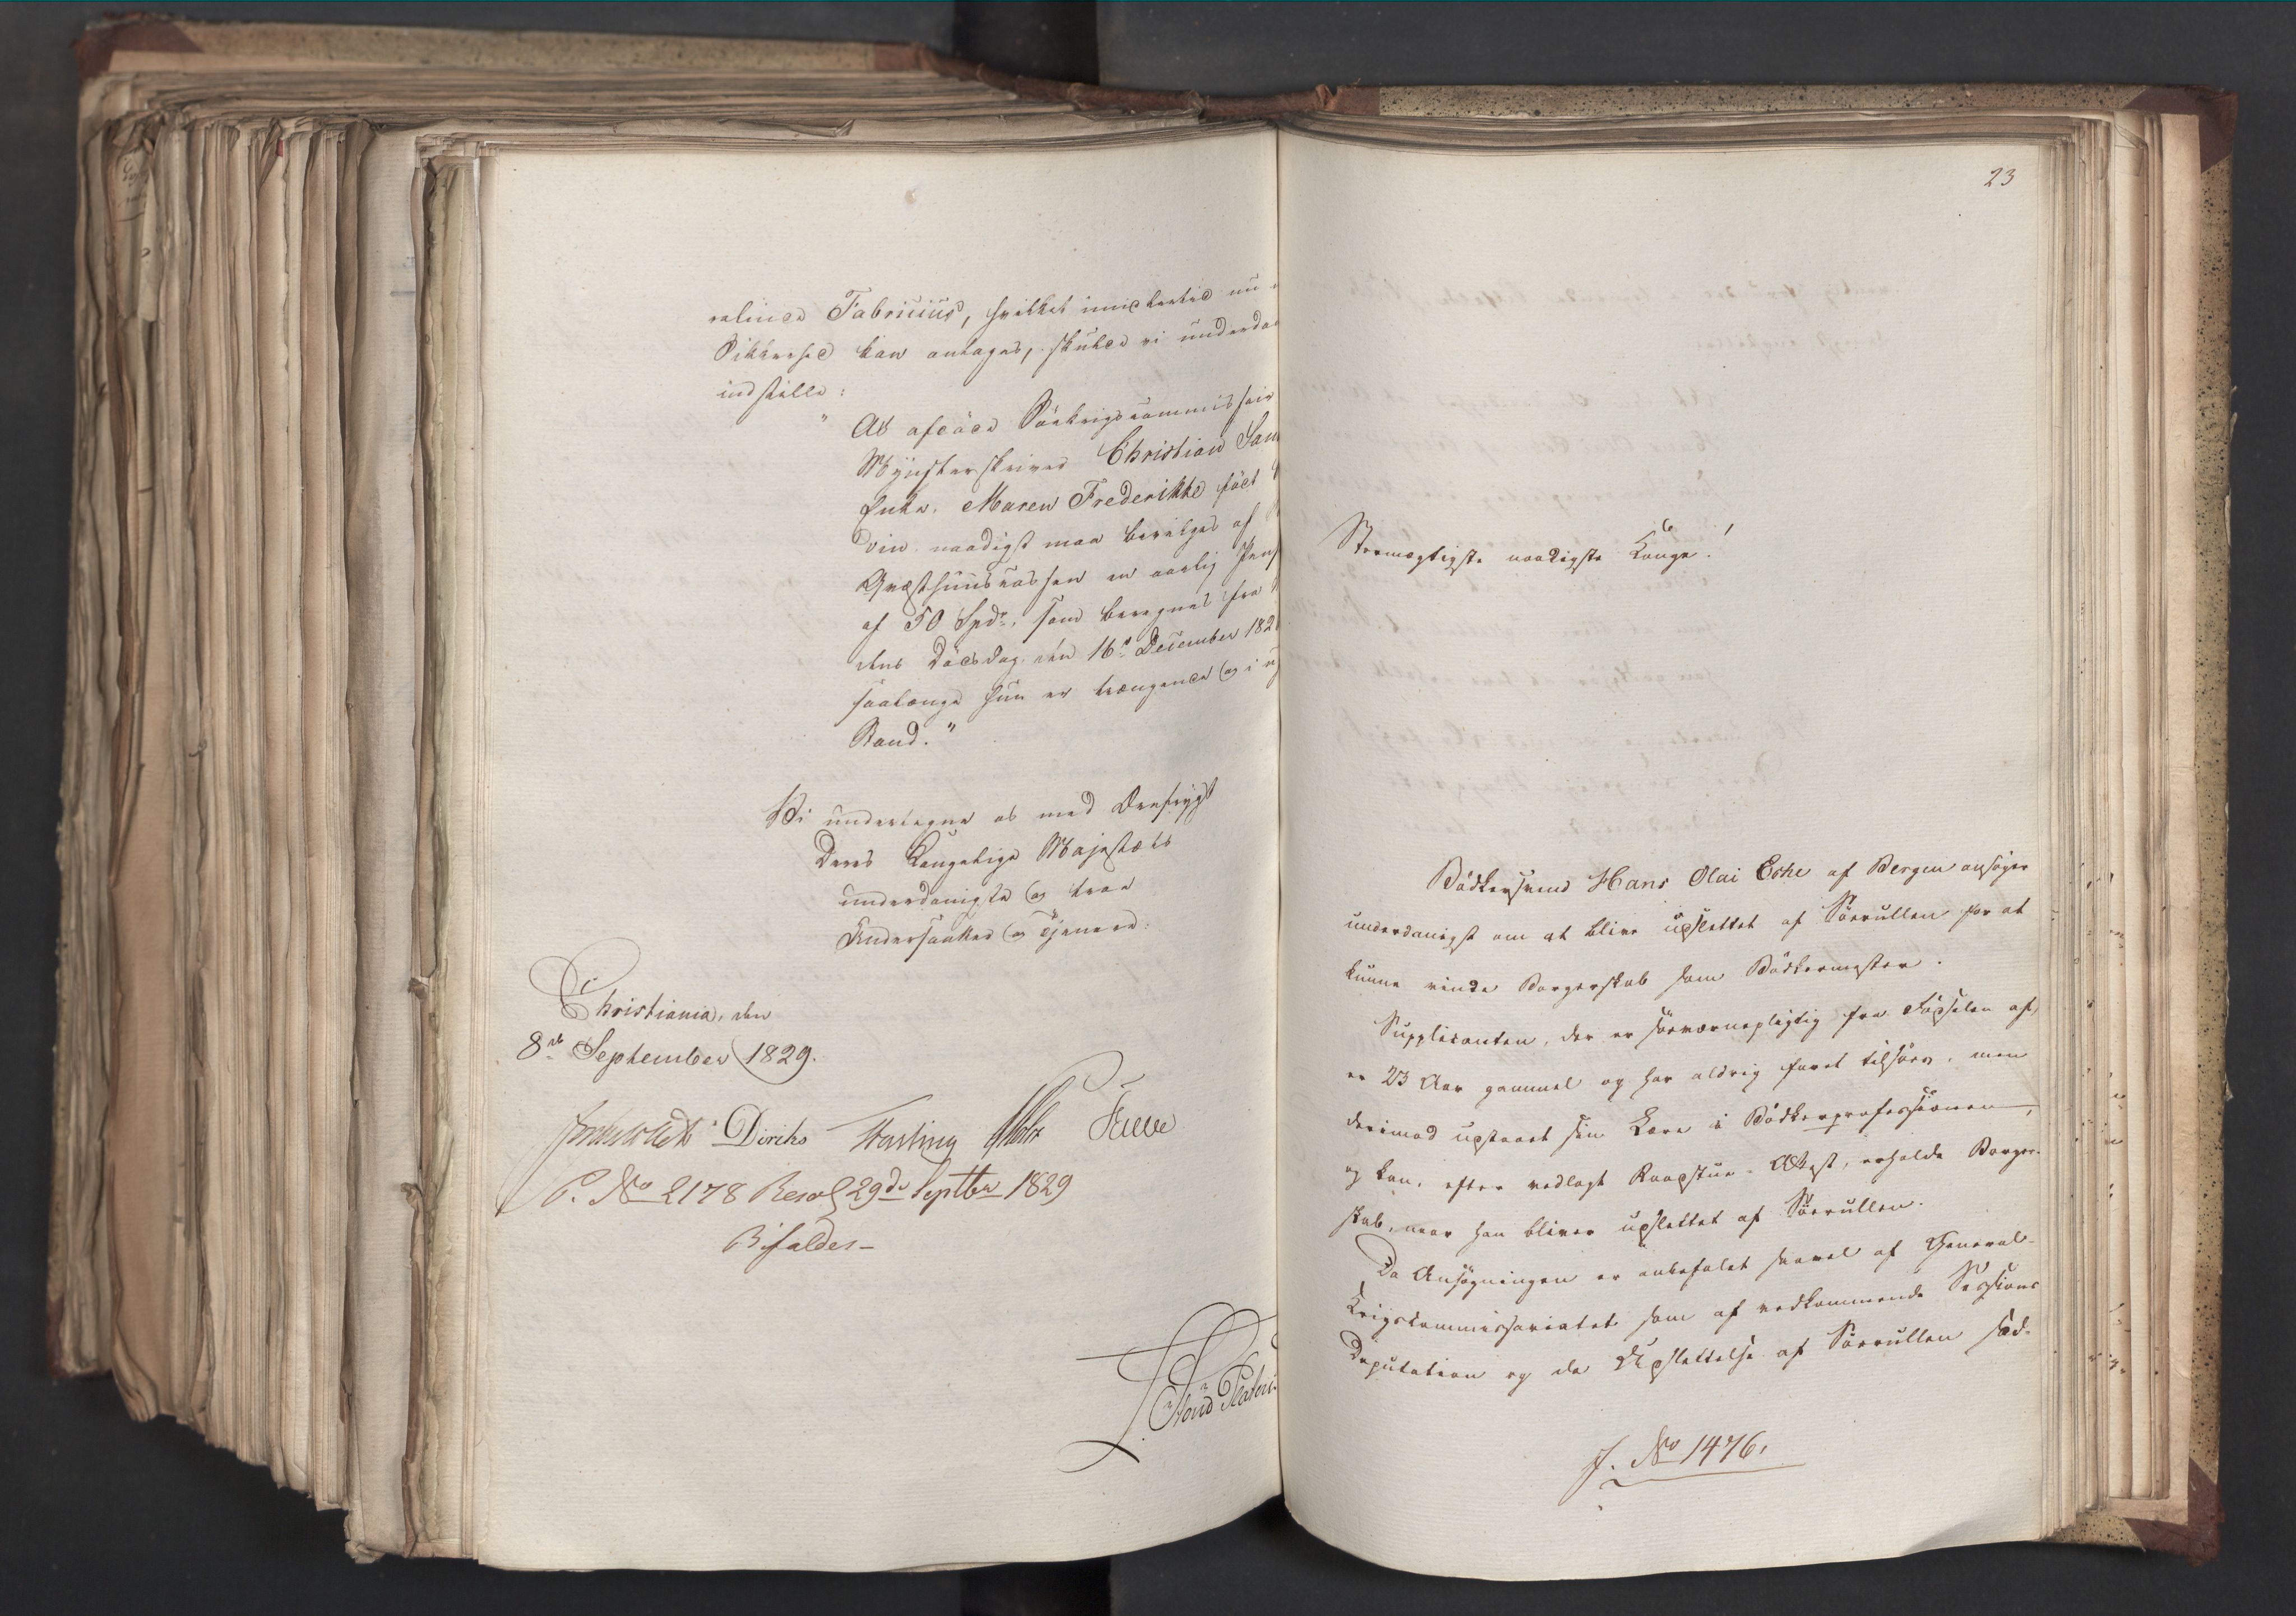 ralinea Fabricius, hvilket imidlertid
Sikkerhed kan antages, skulde vi
indstille:
" At afdöde Söekrigscommissair
Mÿnsterskriver Christian
Enke, Maren Frederikke föed
naadigst maa bevilges af
Qvæsthuuscassen en aarlig
af 50 Spd., som beregnes fra
dens Dödsdag den 16de December
saalænge hun er trængende og i
Stand."
Vi undertegne os med Ærefrÿgt
Deres Kongelige Majestæts
underdanigste og troe
Undersaatter og Tjenere.
Christiania, den
8de September 1829.
Diriks
P. No 2178 Resol 29de Septbr 1829
Bifaldes
23
Stormægtigste naadigste Konge!
Bödkersvend Hans Olai Eche af Bergen ansöger
underdanigst om at blive udslettet af Söerullen for at
kunne vinde Borgerskab som Bödkermester.
Supplicanten, der er söeværnepligtig fra Födselen af,
er 23 Aar gammel og har aldrig faret tilsöes, men
derimod udstaaet sin Lære i Bödkerprofessionen,
og kan, efter vedlagt Raadstue-Attest, erholde Borger-
skab, naar han bliver udslettet af Söerullen.
Da Ansögningen er anbefalet saavel af General-
Krigskommissariatet som af vedkommende Sessions
Deputation og da Udslettelse af Söerullen sæd-
J. No 1476.